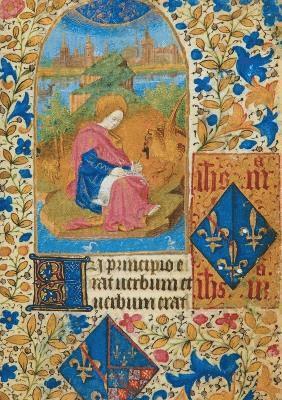 ihs
IN principio e
rat uerbum et
uerbum erat
ihs